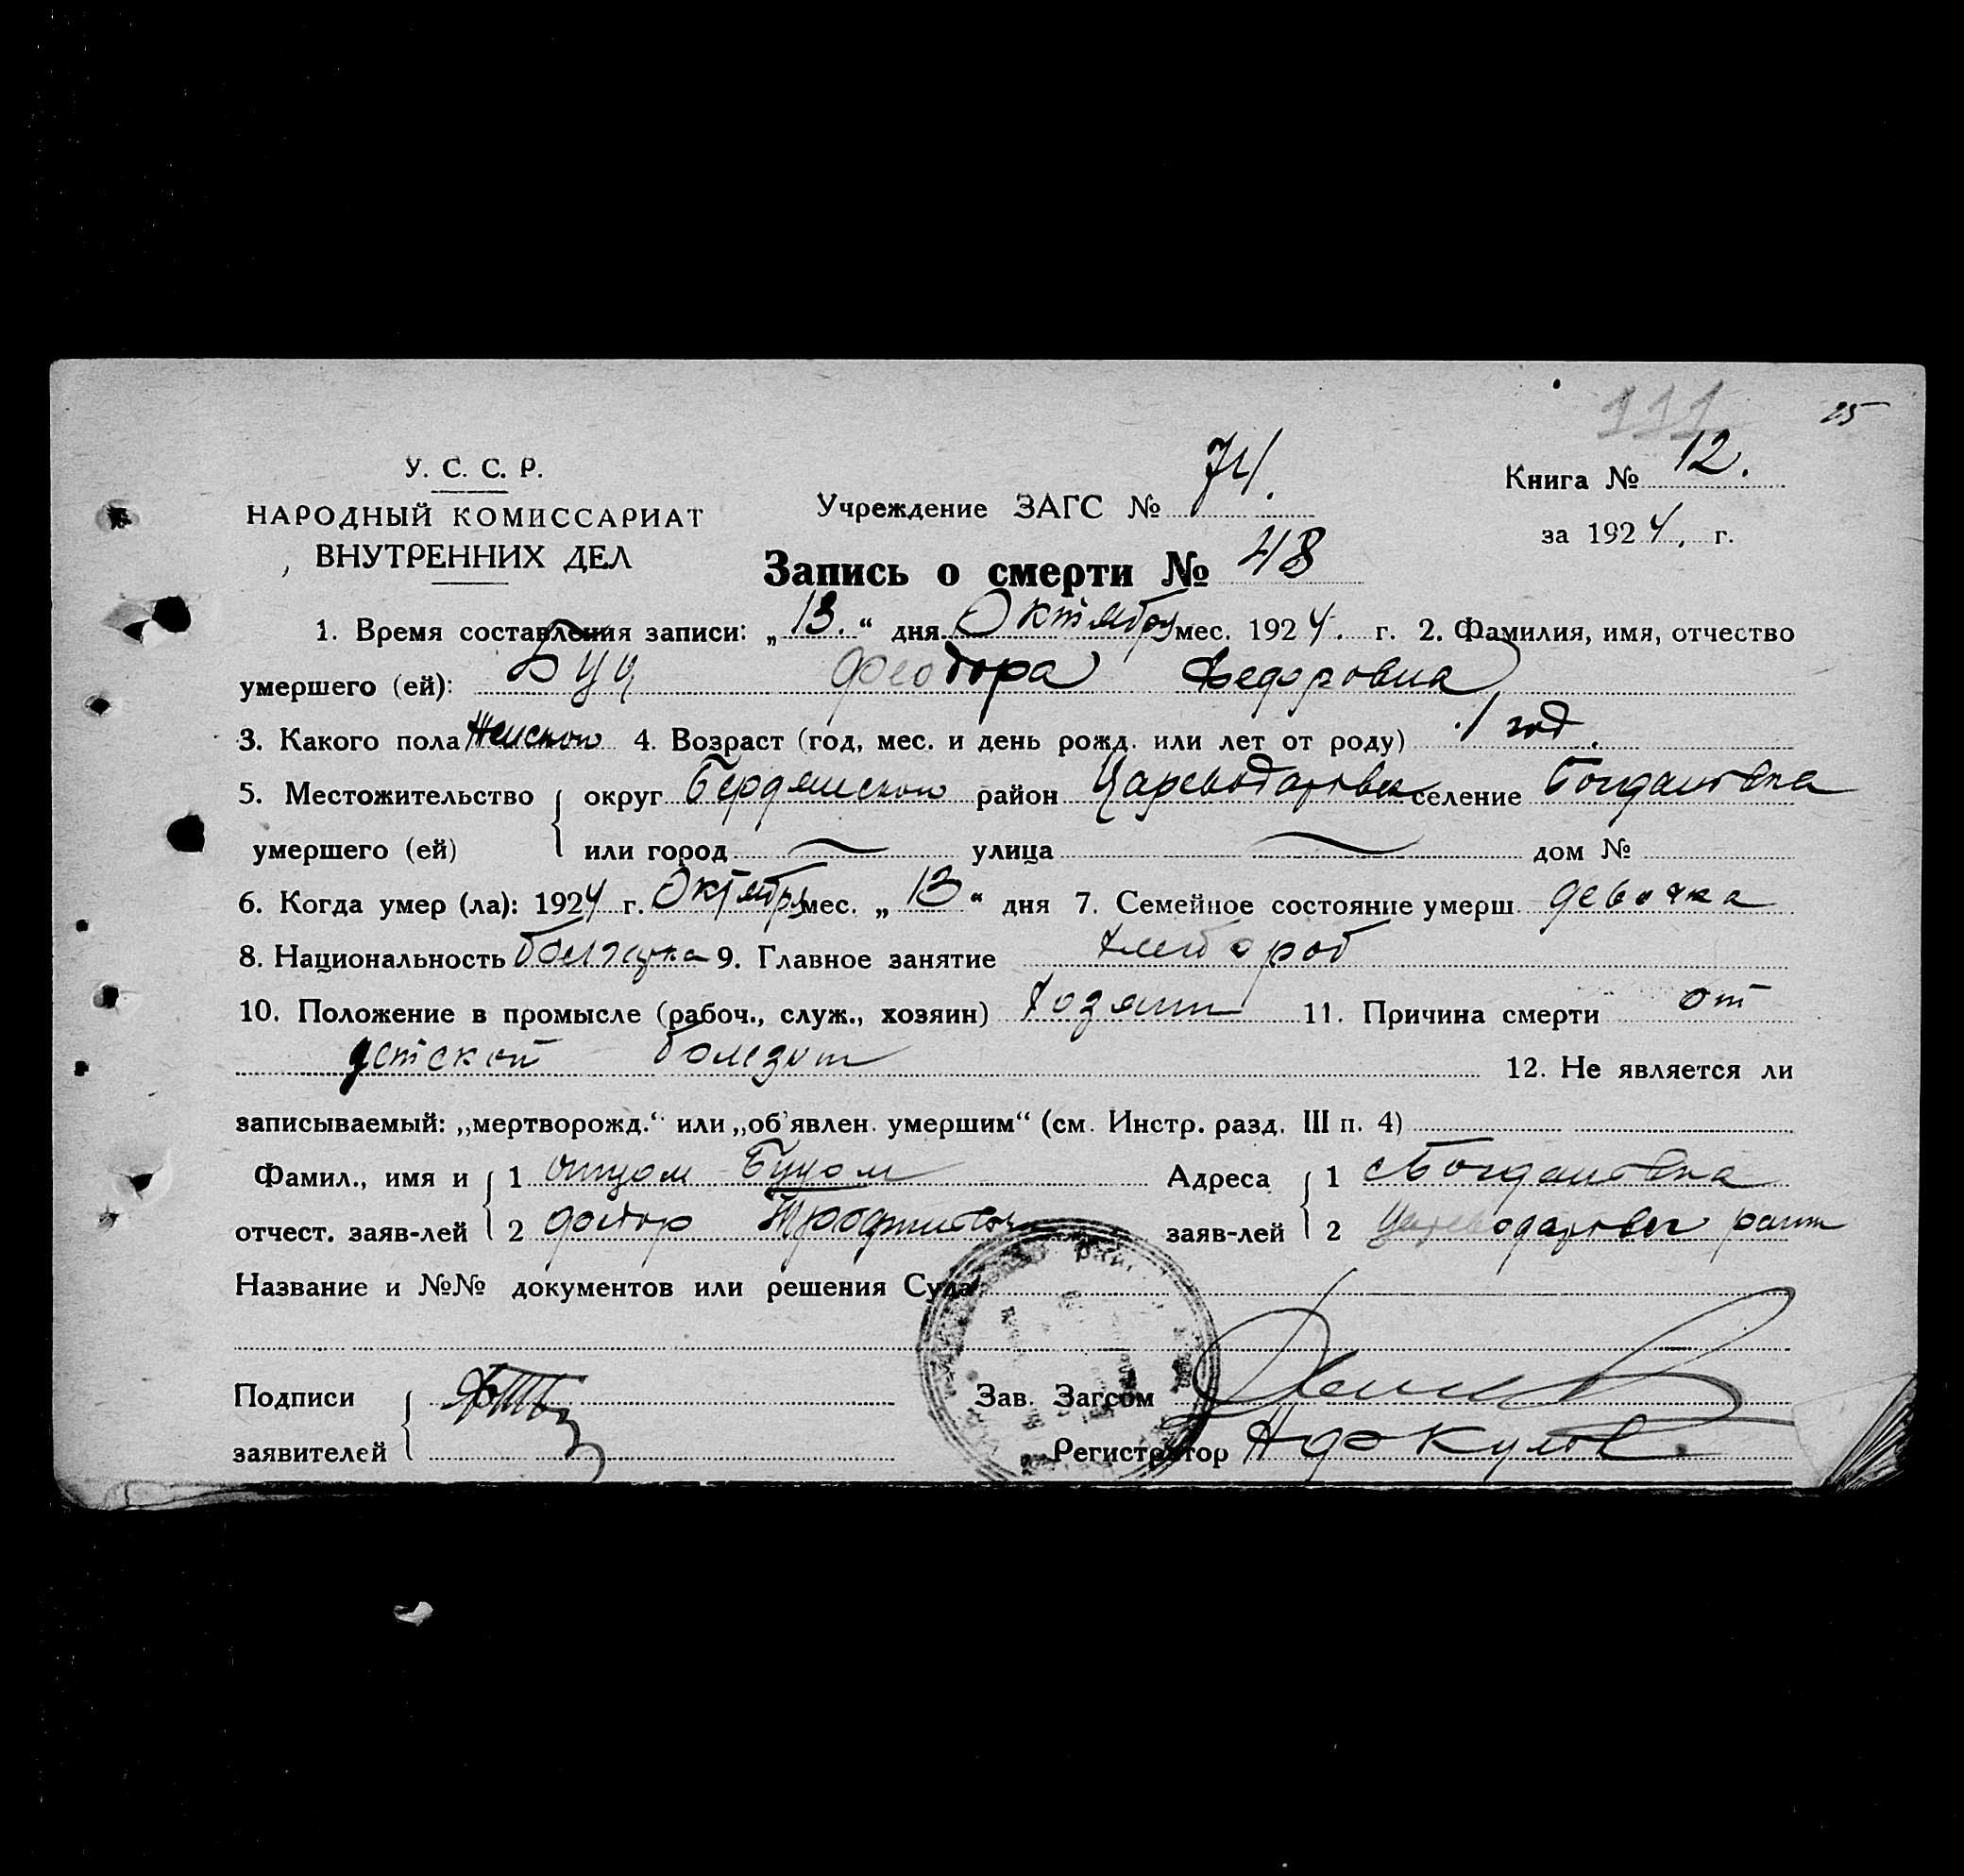 111 25
У. С. С. Р.
НАРОДНЫЙ КОМИССАРИАТ
ВНУТРЕННИХ ДЕЛ
Учреждение ЗАГС № 74.
Книга № 12.
за 1924. г.
Запись о смерти № 48
1. Время составления записи: „13.“ дня Октября мес. 1924. г. 2. Фамилия, имя, отчество
умершего (ей): Буц Феодора Федоровна
3. Какого пола Женскою 4. Возраст (год, мес. и день рожд. или лет от роду) 1 год.
5. Местожительство округ Бердянскою район Цареводаровка селение Богдановка
умершего (ей) или город — улица — дом №
6. Когда умер (ла): 1924 г. Октября мес. „13“ дня 7. Семейное состояние умерш. девочка
8. Национальность болгарка 9. Главное занятие хлебороб
10. Положение в промысле (рабоч., служ., хозяин) хозяин 11. Причина смерти от
детской болезни
12. Не является ли
записываемый: „мертворожд.“ или „об'явлен. умершим“ (см. Инстр. разд. III п. 4)
Фамил., имя и 1 отцом Буцом Адреса 1 с Богдановка
отчест. заяв-лей 2 заяв-лей 2
Название и №№ документов или решения Суда
Подписи Зав. Загсом
заявителей Регистратор